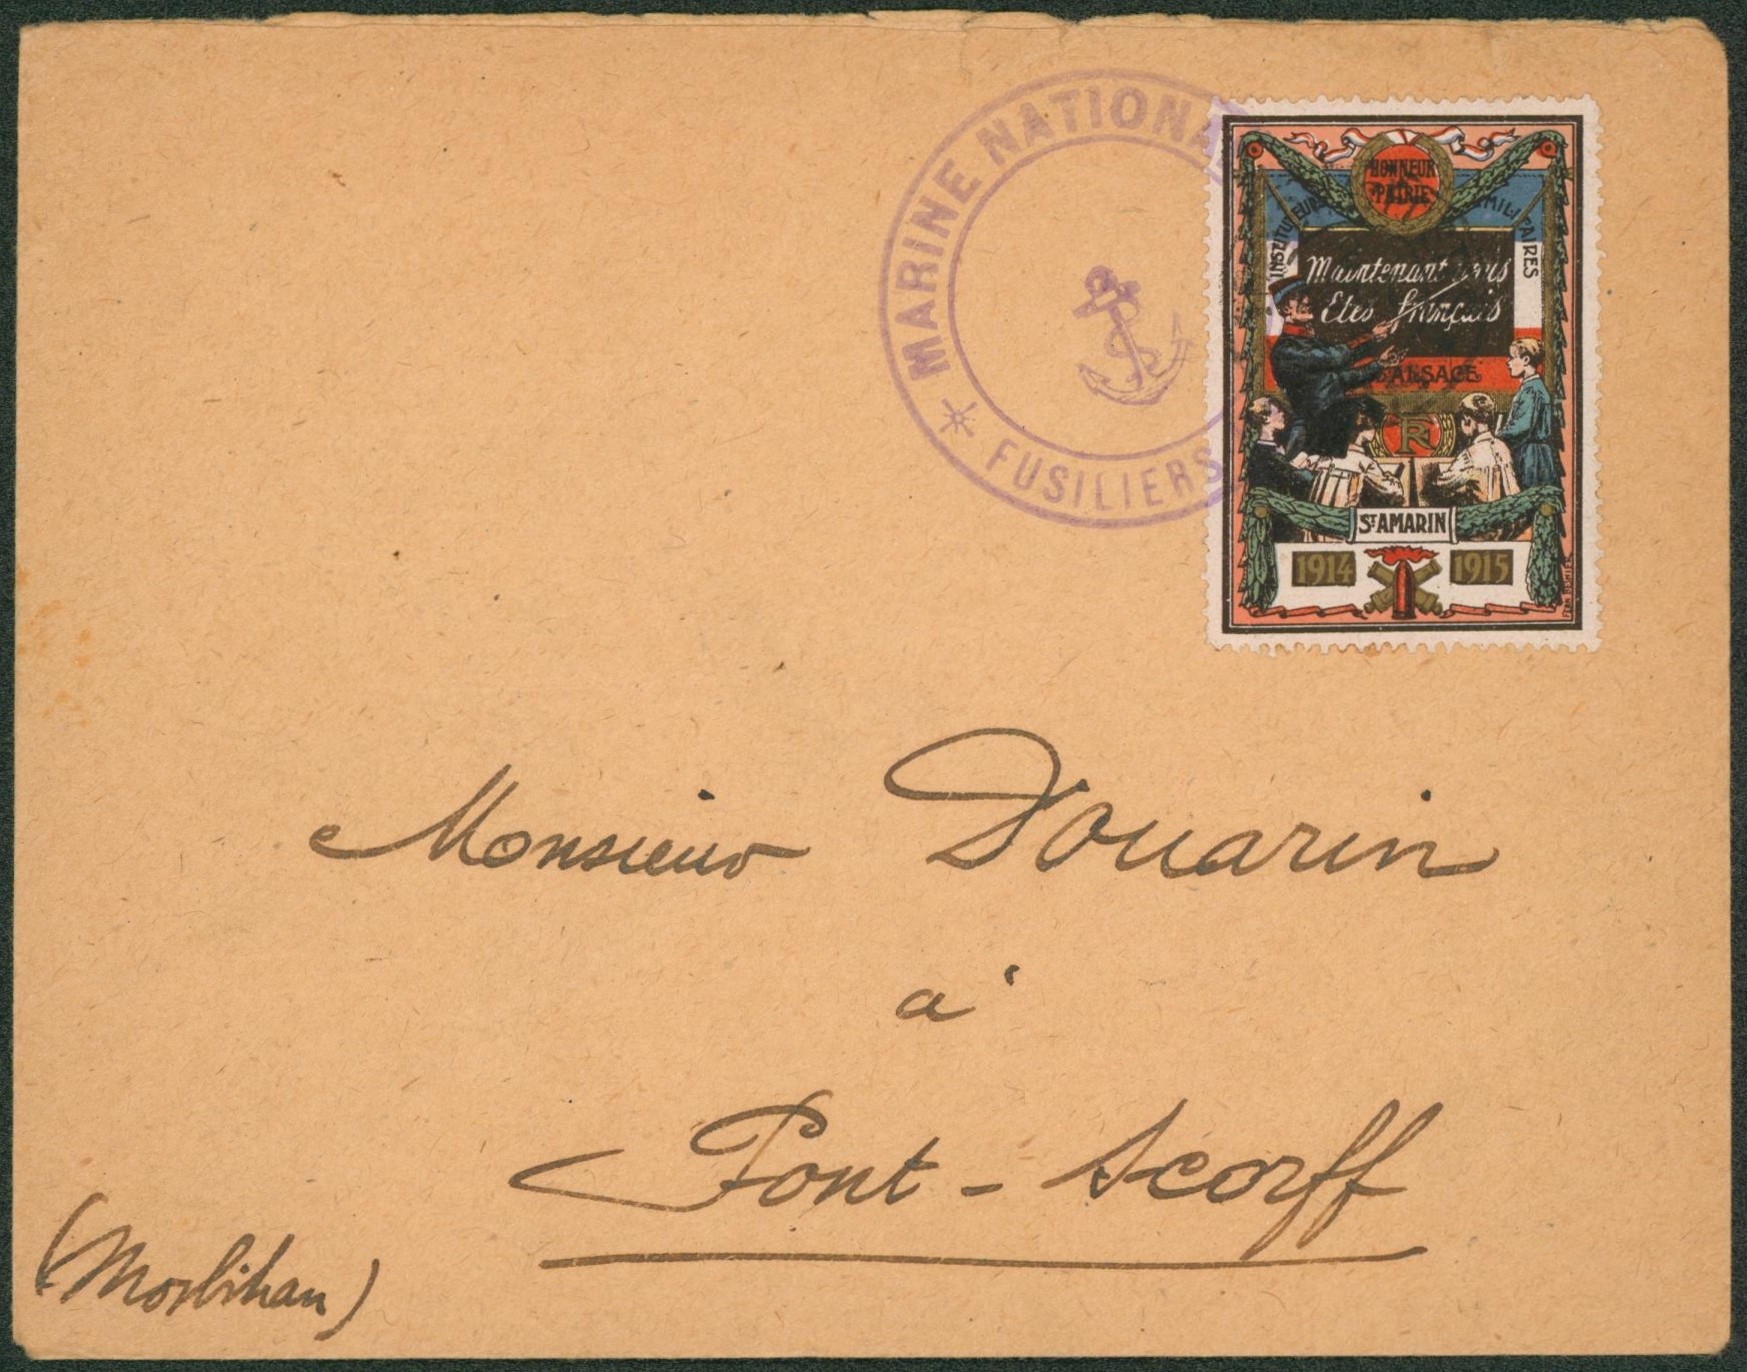 MARINE NATIONA
FUSILIERS
HONNEUR
PATRIE
INSTITUTEUR MILITAIRES
Maintenant vous
Etes français
D'ALSACE
R
ST AMARIN
1914 1915
Monsieur Douarin
à
Pont-Scorff
(Morbihan)